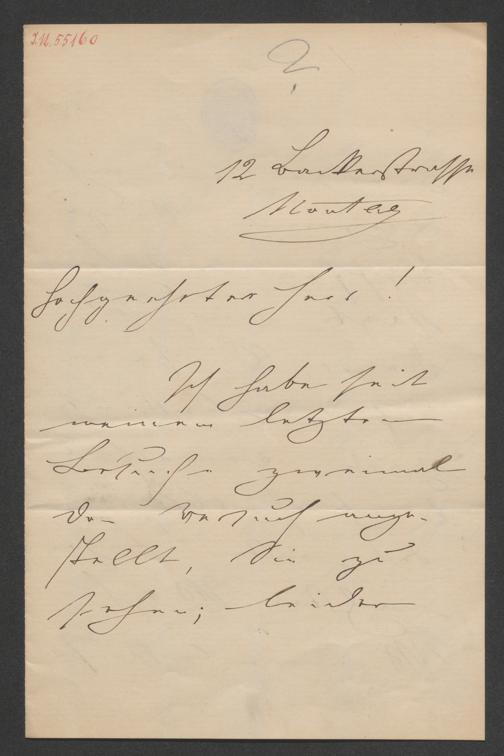 I.N. 55160
?
12 Bäckerstrasse
Montag
Hochgeehrter Herr!
Ich habe seit
meinem letzten
Besuche zweimal
den Versuch ange-
stellt, Sie zu
sehen; leider